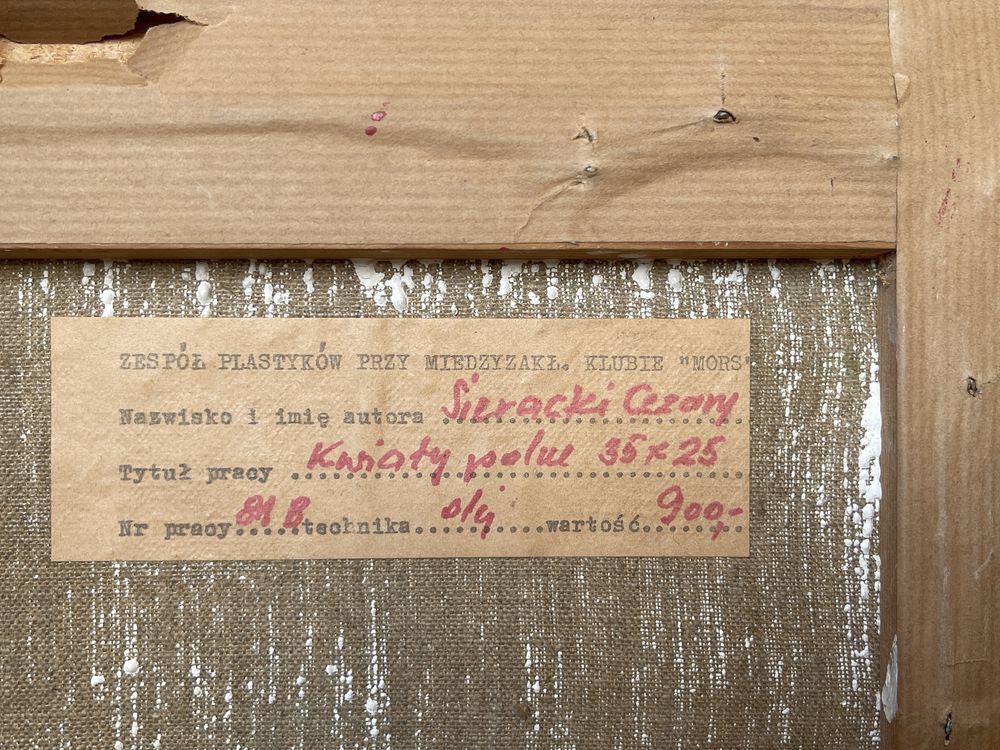 ZESPÓŁ PLASTYKÓW PRZY MIEDZYZAKŁ. KLUBIE "MORS"
Nazwisko i imię autora Sieracki Cezary
Tytuł pracy Kwiaty polne 35x25
Nr pracy 81 B technika olej wartość 900,-